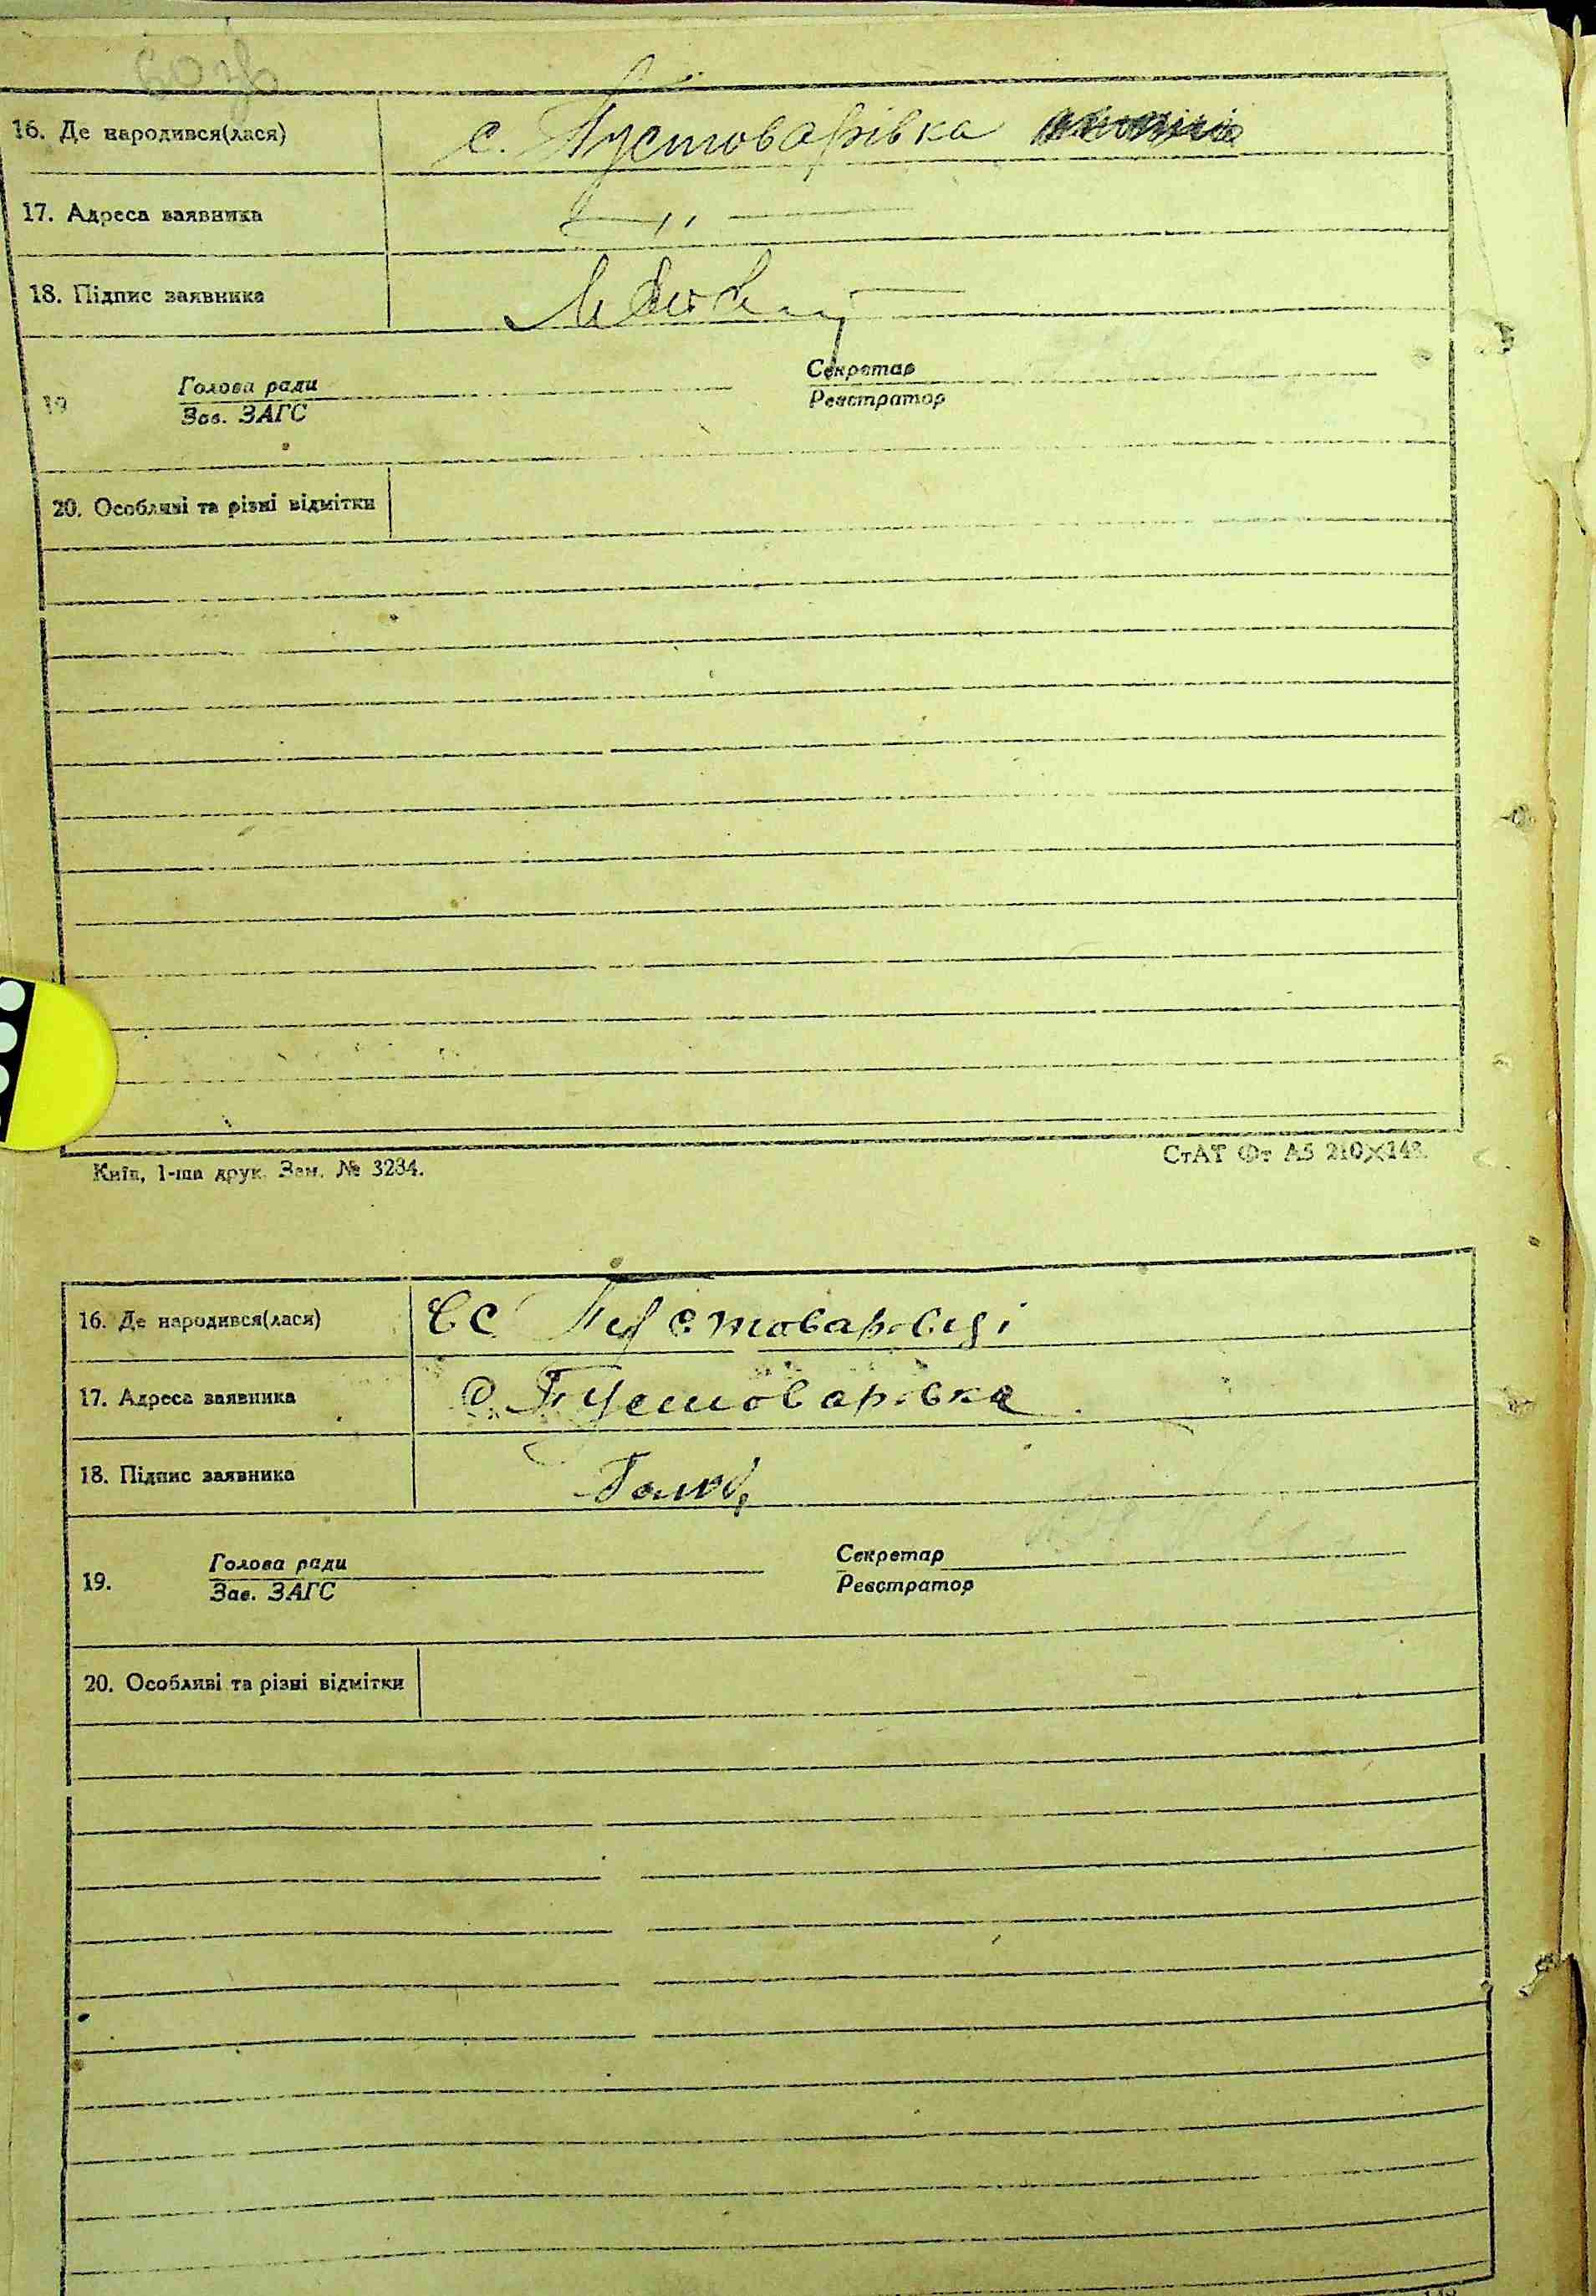 60 зв
16. Де народився(лася) с. Пустоварівка
17. Адреса заявника —,,—
18. Підпис заявника
19 Голова ради Секретар
Зав. ЗАГС Реєстратор
20. Особливі та різні відмітки
Київ, 1-ша друк. Зам. № 3234. СтАТ Фт А5 210×148.
16. Де народився(лася) в с Пустоваровці
17. Адреса заявника с Пустоваровка
18. Підпис заявника
19. Голова ради Секретар
Зав. ЗАГС Реєстратор
20. Особливі та різні відмітки